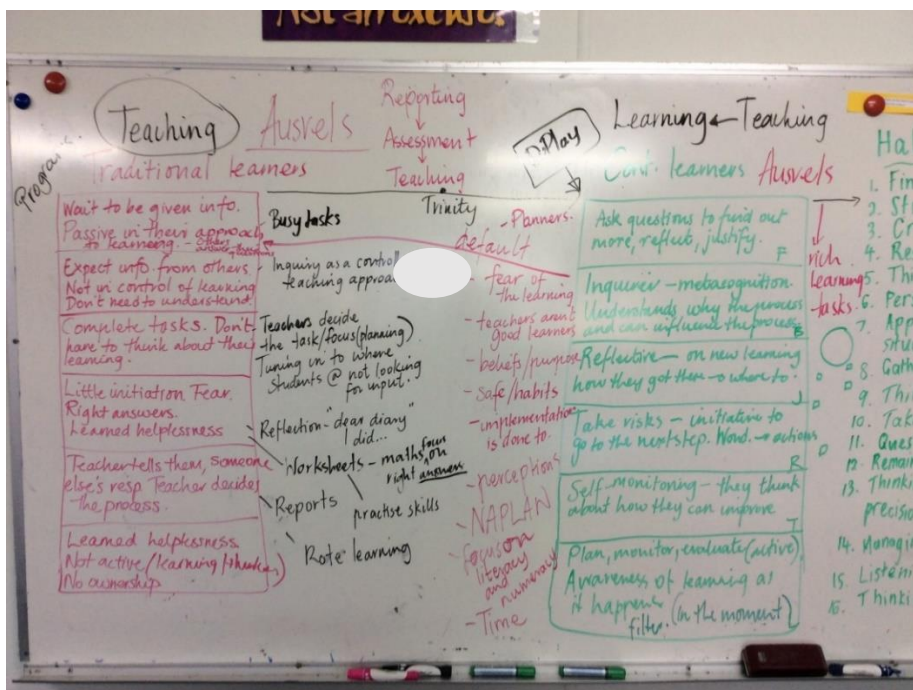 Not an excuse
Program
Teaching
Ausvels
Reporting
Assessment
Teaching
Traditional learners
Wait to be given info.
Passive in their approach
to learning. - Others
Expect info from others -
Not in control of learning
Don't need to understand.
Complete tasks. Don't
have to think about their
learning.
Little initiation. Fear.
Right answers.
Learned helplessness
Teacher tells them, someone
else's resp Teacher decides
the process.
Learned helplessness
Not active (learning/thinker)
No ownership
Busy tasks
Inquiry as a control
teaching approach
Teachers decide
the task/focus (planning)
Tuning in to where
students @ not looking
for input.
Reflection - "dear diary
I did...
Worksheets - maths focus on
right answers
practise skills
Reports
Rote learning
Trinity
- Planners.
default
- fear of
the learning
- teachers aren't
good learners
- beliefs/purpose
- Safe/habits
- implementation
is done to.
- perceptions
- NAPLAN
- focus on
literacy
and
numeracy
- Time
Play
Learning ← Teaching
Cont. learners
Ausvels
Ask questions to find out
more, reflect, justify.
F
Inquirer - metacognition.
Understands why the process
and can influence the process
Reflective - on new learning
how they got there → where to.
J
Take risks - initiative to
go to the next step. Word → actions
R
Self-monitoring - they think
about how they can improve
T
Plan, monitor, evaluate (active)
Awareness of learning as
it happens
filter. (in the moment)
rich
learning
tasks.
Ha
1. Fin
2. St
3. Cr
4. Re
5. Th
6. Per
7. App
situ
8. Gath
9. Thi
10. Tak
11. Ques
12. Remain
13. Thinki
precisio
14. Managi
15. Listeni
16. Thinki